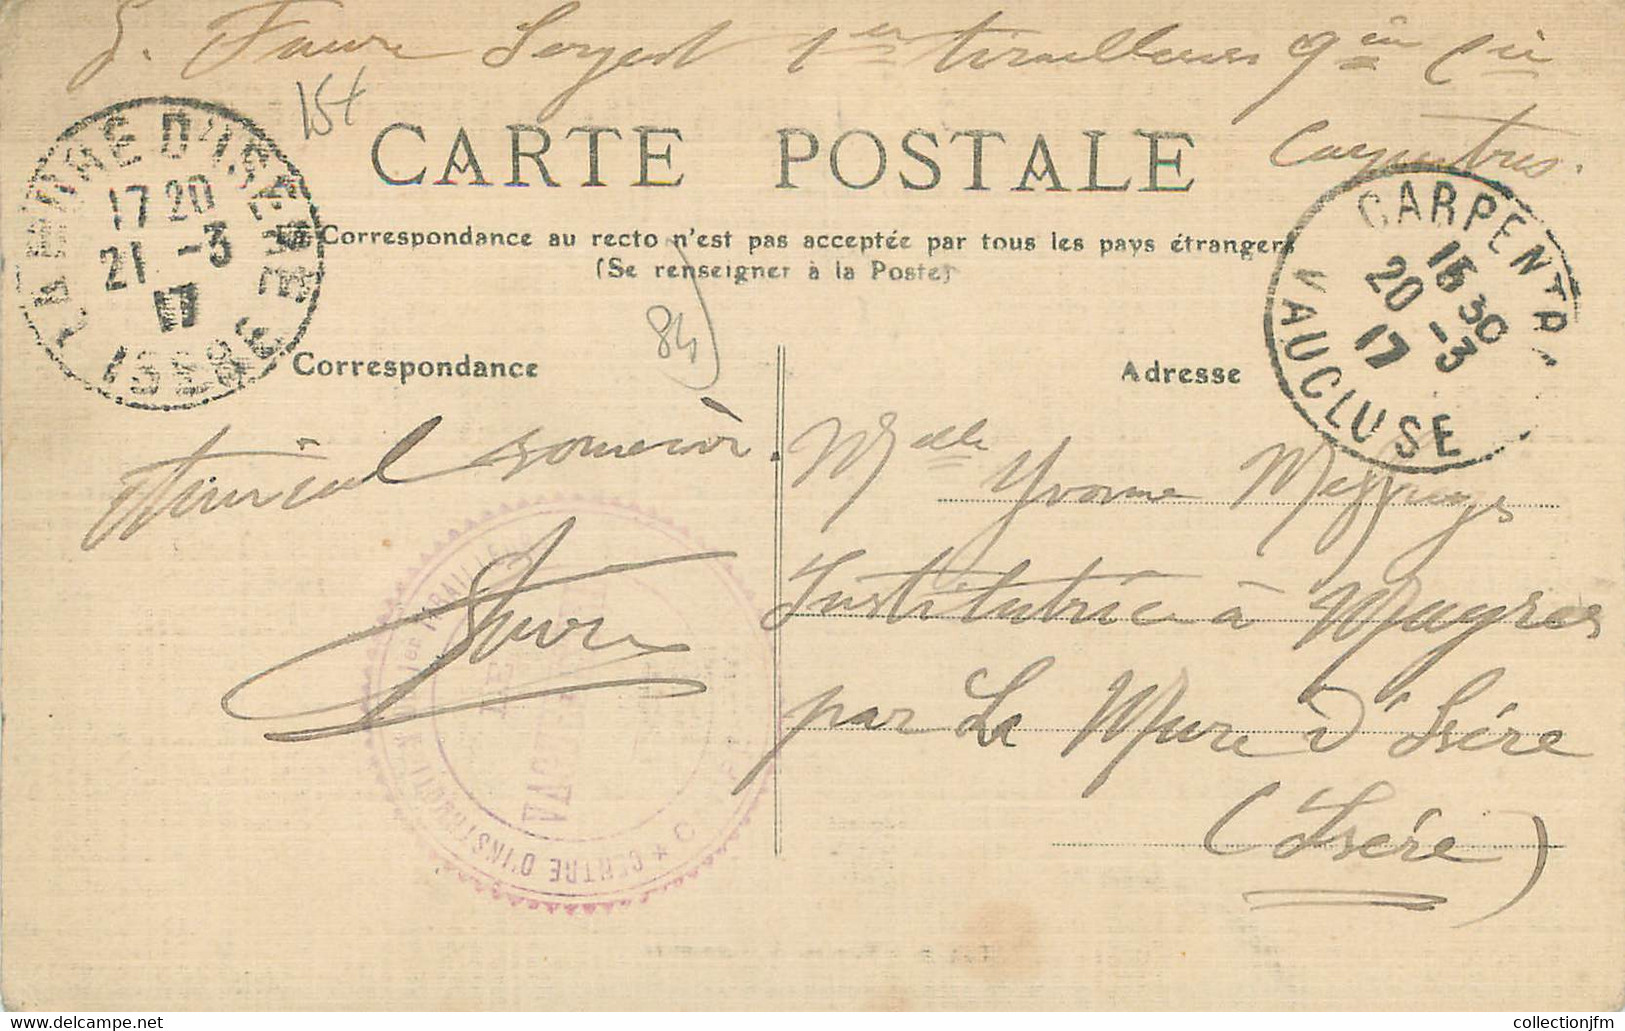 S. Faure Sergent 1er tirailleurs 9ème Cie
Carpentras.
15+
CARTE POSTALE
Correspondance au recto n'est pas acceptée par tous les pays étrangers
(Se renseigner à la Poste)
LA MURE D'ISERE
17 20
21 -3
17
ISERE
CARPENTRAS
15 30
20 -3
17
VAUCLUSE
84)
Correspondance
Adresse
Amical souvenir.
Faure
Melle Yvonne
Institutrice à Mayres
par La Mure d'Isère
(Isère)
CENTRE D'INSTRUCTION 1er TIRAILLEURS
collectionjfm